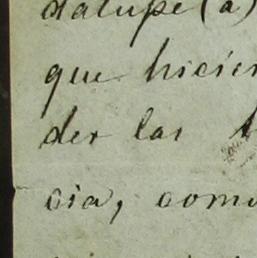 dalupe (a)
que hicier
der las
cia, como